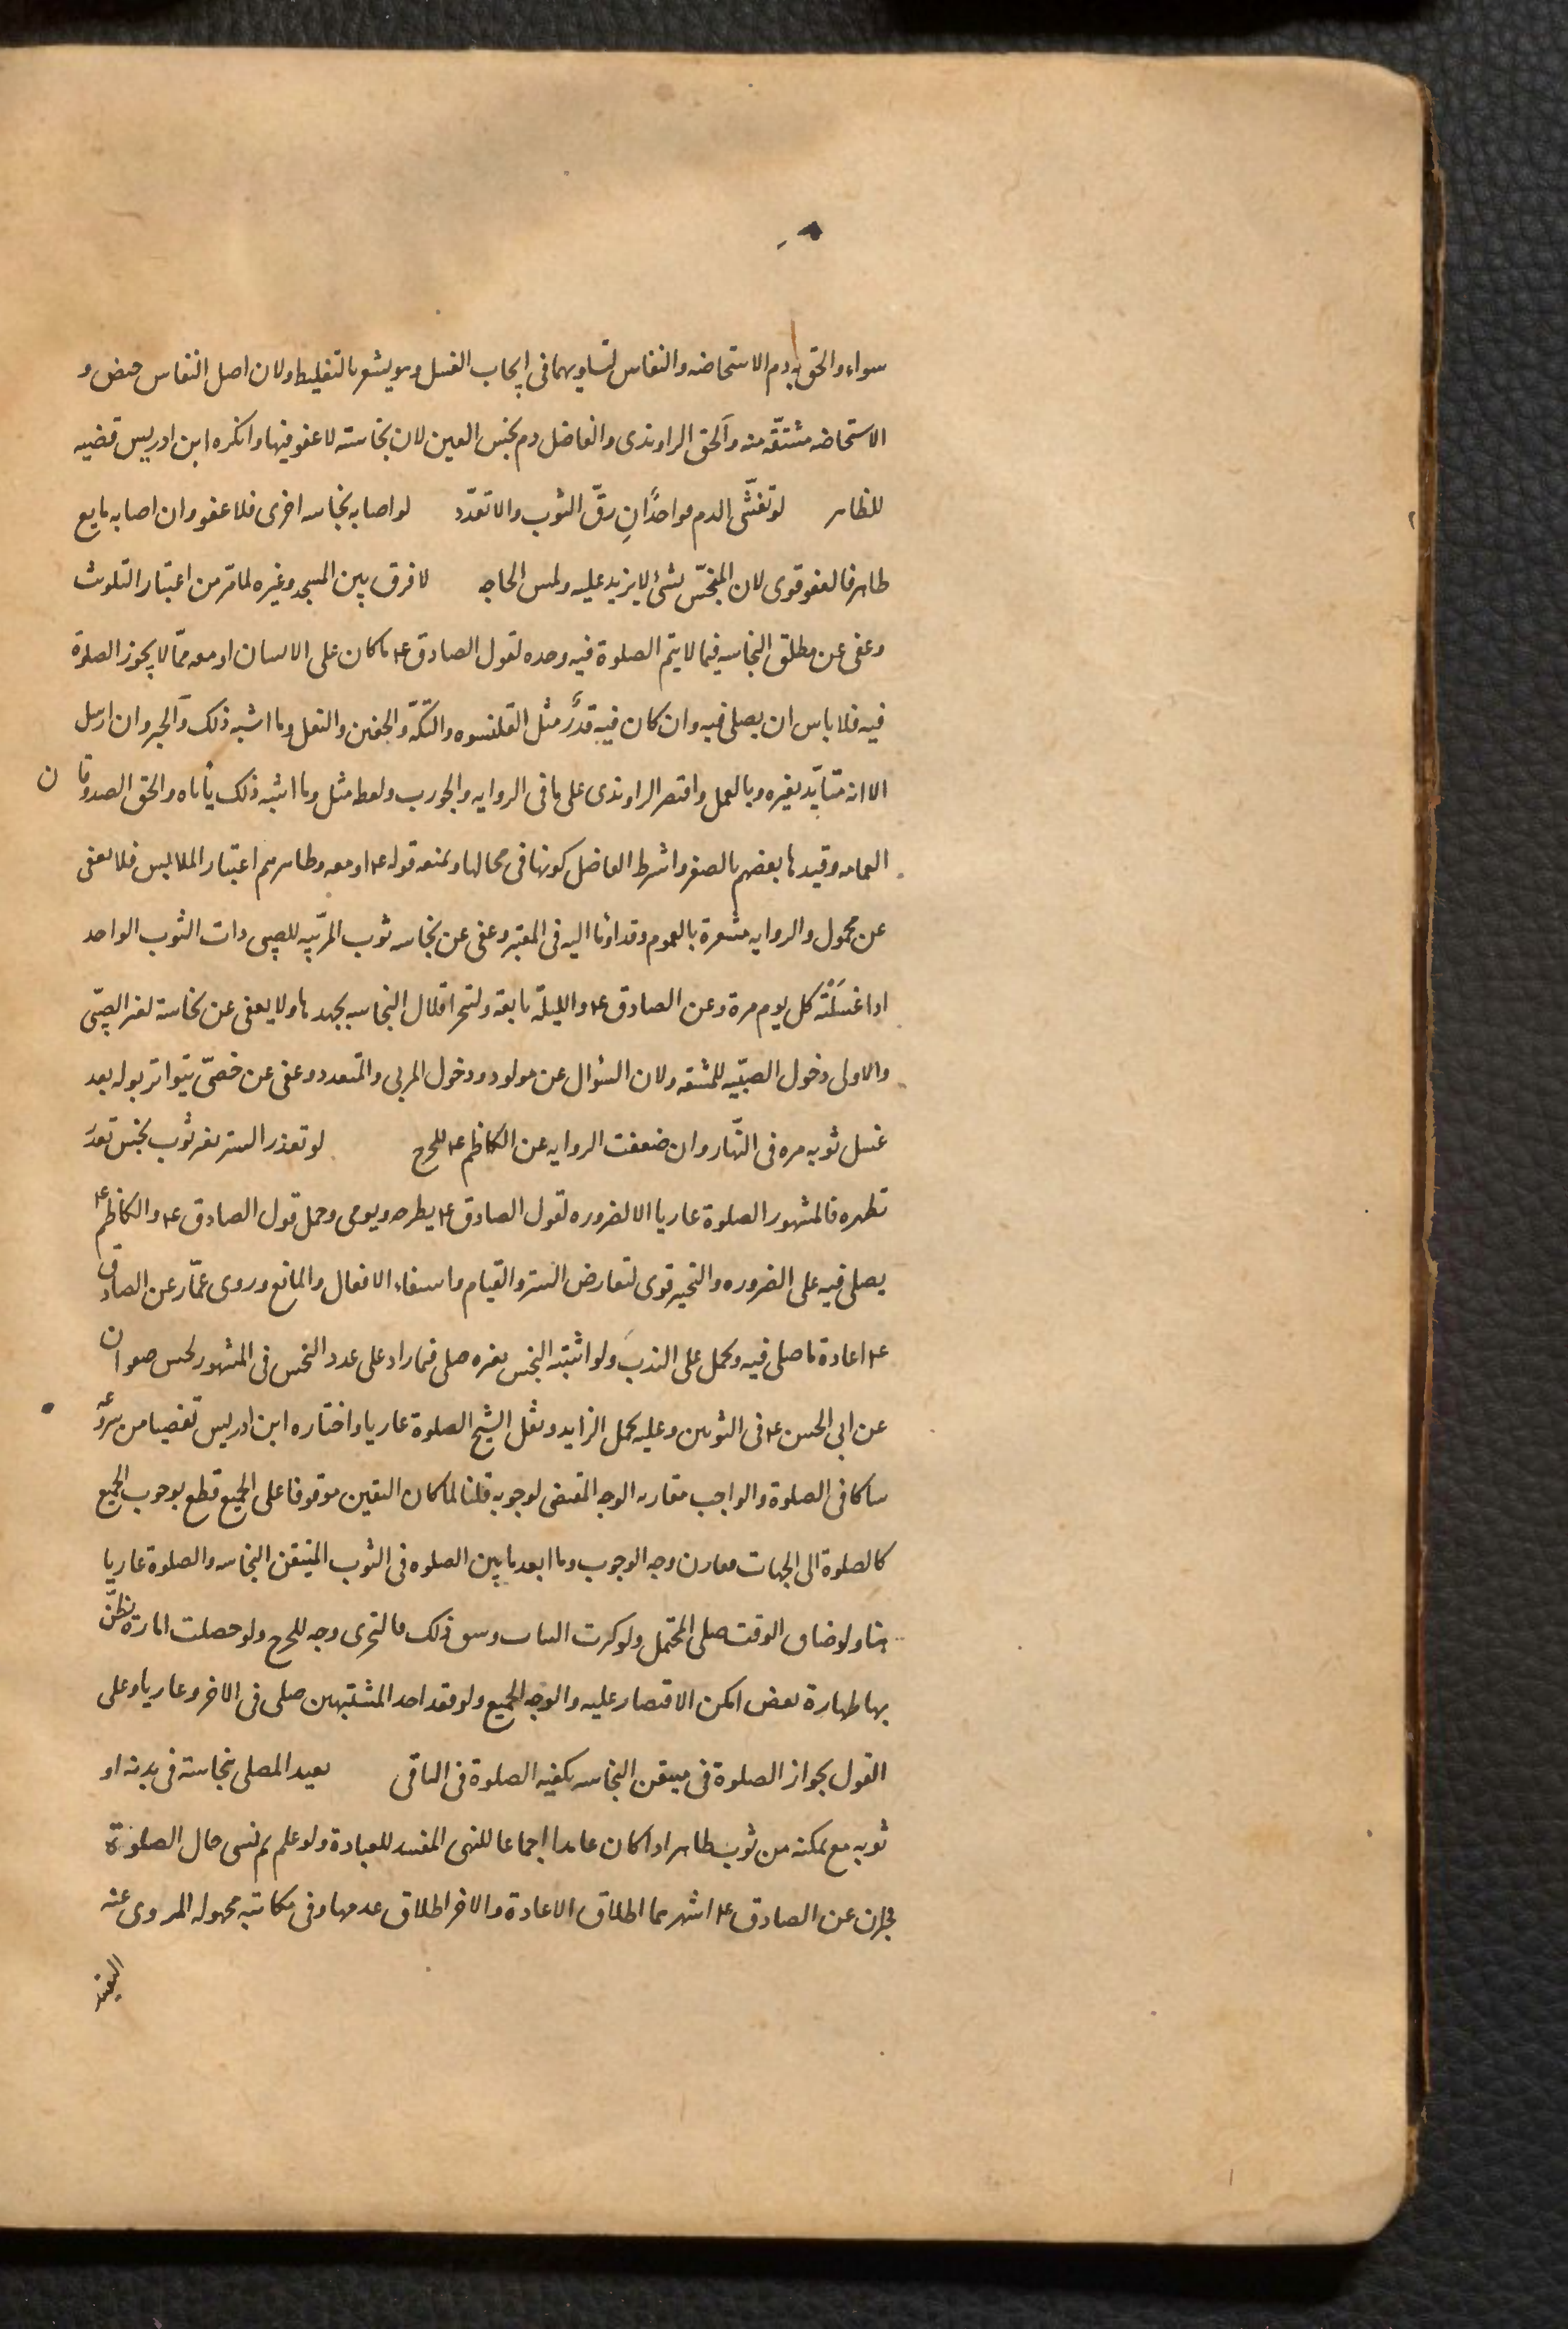 سواء والحق به دم الاستحاضه والنفاس لتساويهما فى ايجاب الغسل وهو يشعر بالتغليظ ولان اصل النفاس حيض و
الاستحاضه مشتقّه منه وآلحق الراوندى والفاضل دم نجس العين لان نجاسته لا عفو فيها وانكره ابن ادريس قضيه
للظاهر لو تفشّى الدم فواحدًا انِ رقّ الثوب والا تعدّد لو اصابه نجاسه اخرى فلا عفو وان اصابه مايع
طاهر فالعفو قوى لان المنجّس بشئ لا يزيد عليه ولمس الحاجه لا فرق بين المسجد وغيره لما مر من اعتبار التلوث
وعفى عن مطلق النجاسه فيما لا يتم الصلوة فيه وحده لقول الصادق ع ما كان على الانسان او معه ممّا لا يجوز الصلوة
فيه فلا باس ان يصلى فيه وان كان فيه قذَرٌ مثل القلنسوه والتكّه والخفين والنعل وما اشبه ذلك وآلخبر وان ارسل
الا انه متايّد بغيره وبالعمل واقتصر الراوندى على ما فى الروايه والجورب ولفظ مثل وما اشبه ذلك ياباه والحق الصدوقان
العمامه وقيدها بعضهم بالصغر واشرط الفاضل كونها فى محالها ويمنعه قوله ع او معه وظاهرهم اعتبار الملابس فلا يعفى
عن محمول والروايه مشعرة بالعموم وقد اومأ اليه فى المعتبر وعفى عن نجاسه ثوب المربّيه للصبى ذات الثوب الواحد
اذا غسلَتْه كل يوم مرة وعن الصادق ع والليلة تابعة ولتحر اقلال النجاسه بجهدها ولا يعفى عن نجاسته لغير الصبّى
والاولى دخول الصبيّه للمشقه ولان السؤال عن مولود ودخول المربى والمتعدد وعفى عن خصىّ يتواتر بوله بعد
غسل ثوبه مره فى النّهار وان ضعفت الروايه عن الكاظم ع للحرج لو تعذر الستر بغير ثوب نجس تعذر
تطهره فالمشهور الصلوة عاريا الا لضروره لقول الصادق ع يطرحه ويومى وحمل قول الصادق ع والكاظم ع
يصلى فيه على الضروره والتخير قوى لتعارض الستر والقيام واستيفاء الافعال والمانع وروى عمّار عن الصادق
ع اعادة ما صلى فيه ويحمل على الندبَ ولو اشتبه النجس بغيره صلى فيما زاد على عدد النجس فى المشهور لحسن صفوان
عن ابى الحسن ع فى الثوبين وعليه يحمل الزايد ونقل الشيخ الصلوة عاريا واختاره ابن ادريس تفصيا من شروعه
شاكا فى الصلوة والواجب مقارنه الوجه المقتضى لوجوبه قلنا لما كان اليقين موقوفا على الجميع قطع بوجوب الجميع
كالصلوة الى الجهات فقارن وجه الوجوب وما ابعد ما بين الصلوه فى الثوب المتيقن النجاسه والصلوة عاريا
هنا ولو ضاق الوقت صلى المحتمل ولو كثرت الثياب وشق ذلك فالتحرى وجه للحرج ولو حصلت امارة يظنّ
بها طهارة بعض امكن الاقتصار عليه والوجه الجميع ولو فقد احد المشتبهين صلى فى الاخر وعاريا وعلى
القول بجواز الصلوة فى متيقن النجاسه يكفيه الصلوة فى الباقى يعيد المصلى بنجاسته فى بدنه او
ثوبه مع تمكنه من ثوب طاهر اذا كان عامدا اجماعا للنهى المفسد للعبادة ولو علم ثم نسى حال الصلوة
فخبران عن الصادق ع اشهرهما اطلاق الاعادة والاخر اطلاق عدمها وفى مكاتبه مجهوله المروى عنه